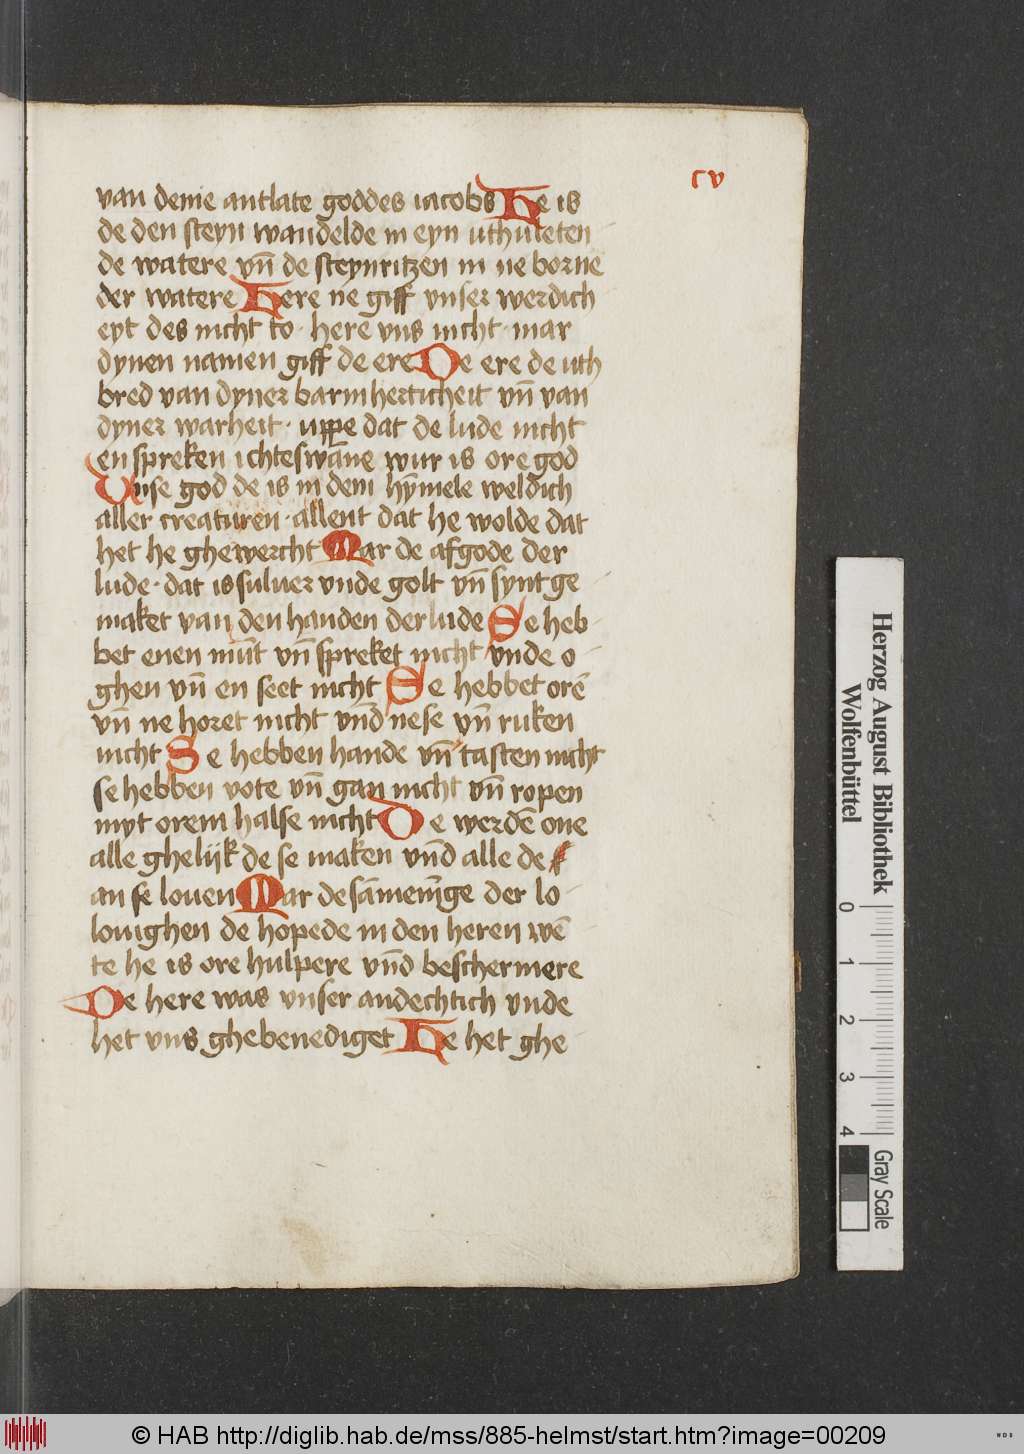 cv
van deme antlate goddes iacobs He is
de den steyn wandelde in eyn uthuleten
de watere vn̄ de steynritzen in ne borne
der watere Here ne giff vnser werdich
eyt des nicht to · here vns nicht · mar
dynen namen giff de ere De ere de uth
bred van dyner barmherticheit vn̄ van
dyner warheit · uppe dat de lude nicht
en spreken ichteswāne wur is ore god
Vnse god de is in dem hȳmele weldich
aller creaturen · allent dat he wolde dat
het he ghewercht Mar de afgode der
lude · dat is suluer vnde golt vn̄ synt ge
maket van den handen der lude Se heb
bet enen mūt vn̄ spreket nicht vnde o
ghen vn̄ en seet nicht Se hebbet orē
vn̄ ne horet nicht vn̄d nese vn̄ ruken
nicht Se hebben hande vn̄ tasten nicht
se hebben vote vn̄ gan nicht vn̄ ropen
myt orem halse nicht De werdē one
alle ghelijk de se maken vn̄d alle de
an se louen Mar de sāmenīge der lo
louighen de hopede in den heren wē
te he is ore hulpere vn̄d beschermere
De here was vnser andechtich vnde
het vns ghebenediget He het ghe
Herzog August Bibliothek
Wolfenbüttel
0 1 2 3 4
Gray Scale
© HAB http://diglib.hab.de/mss/885-helmst/start.htm?image=00209